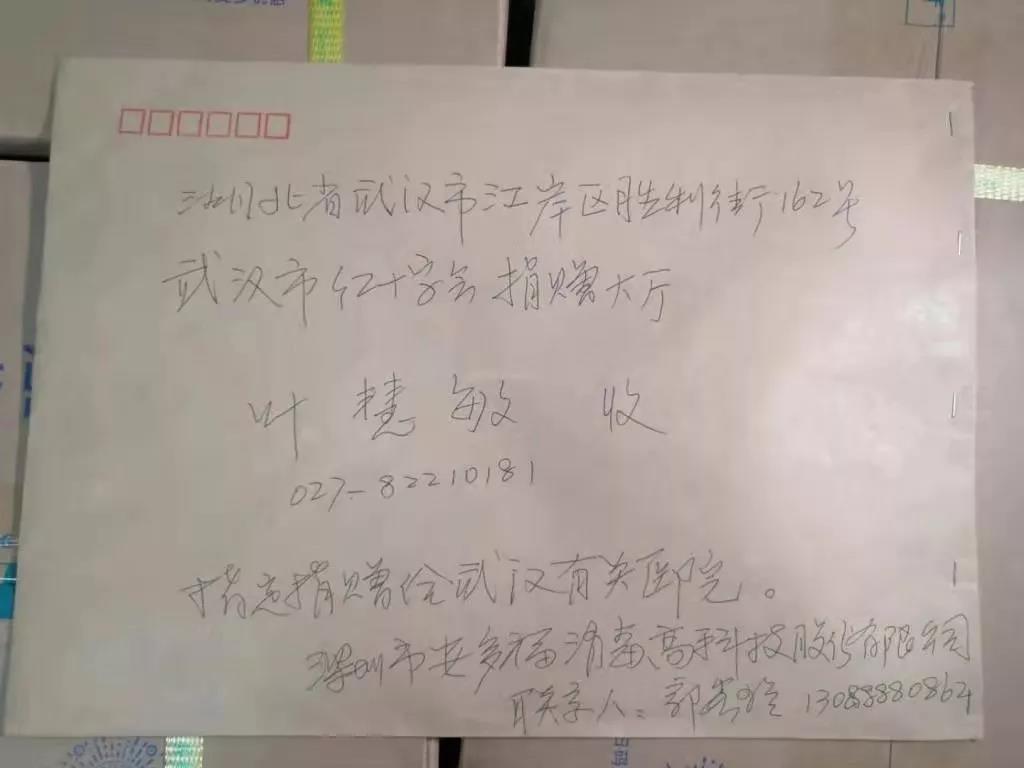 湖北省武汉市江岸区胜利街162号
武汉市红十字会捐赠大厅
叶慧敏 收
027-82210181
指定捐赠给武汉有关医院。
深圳市安多福消毒高科技股份有限公司
联系人：郭 13088880864